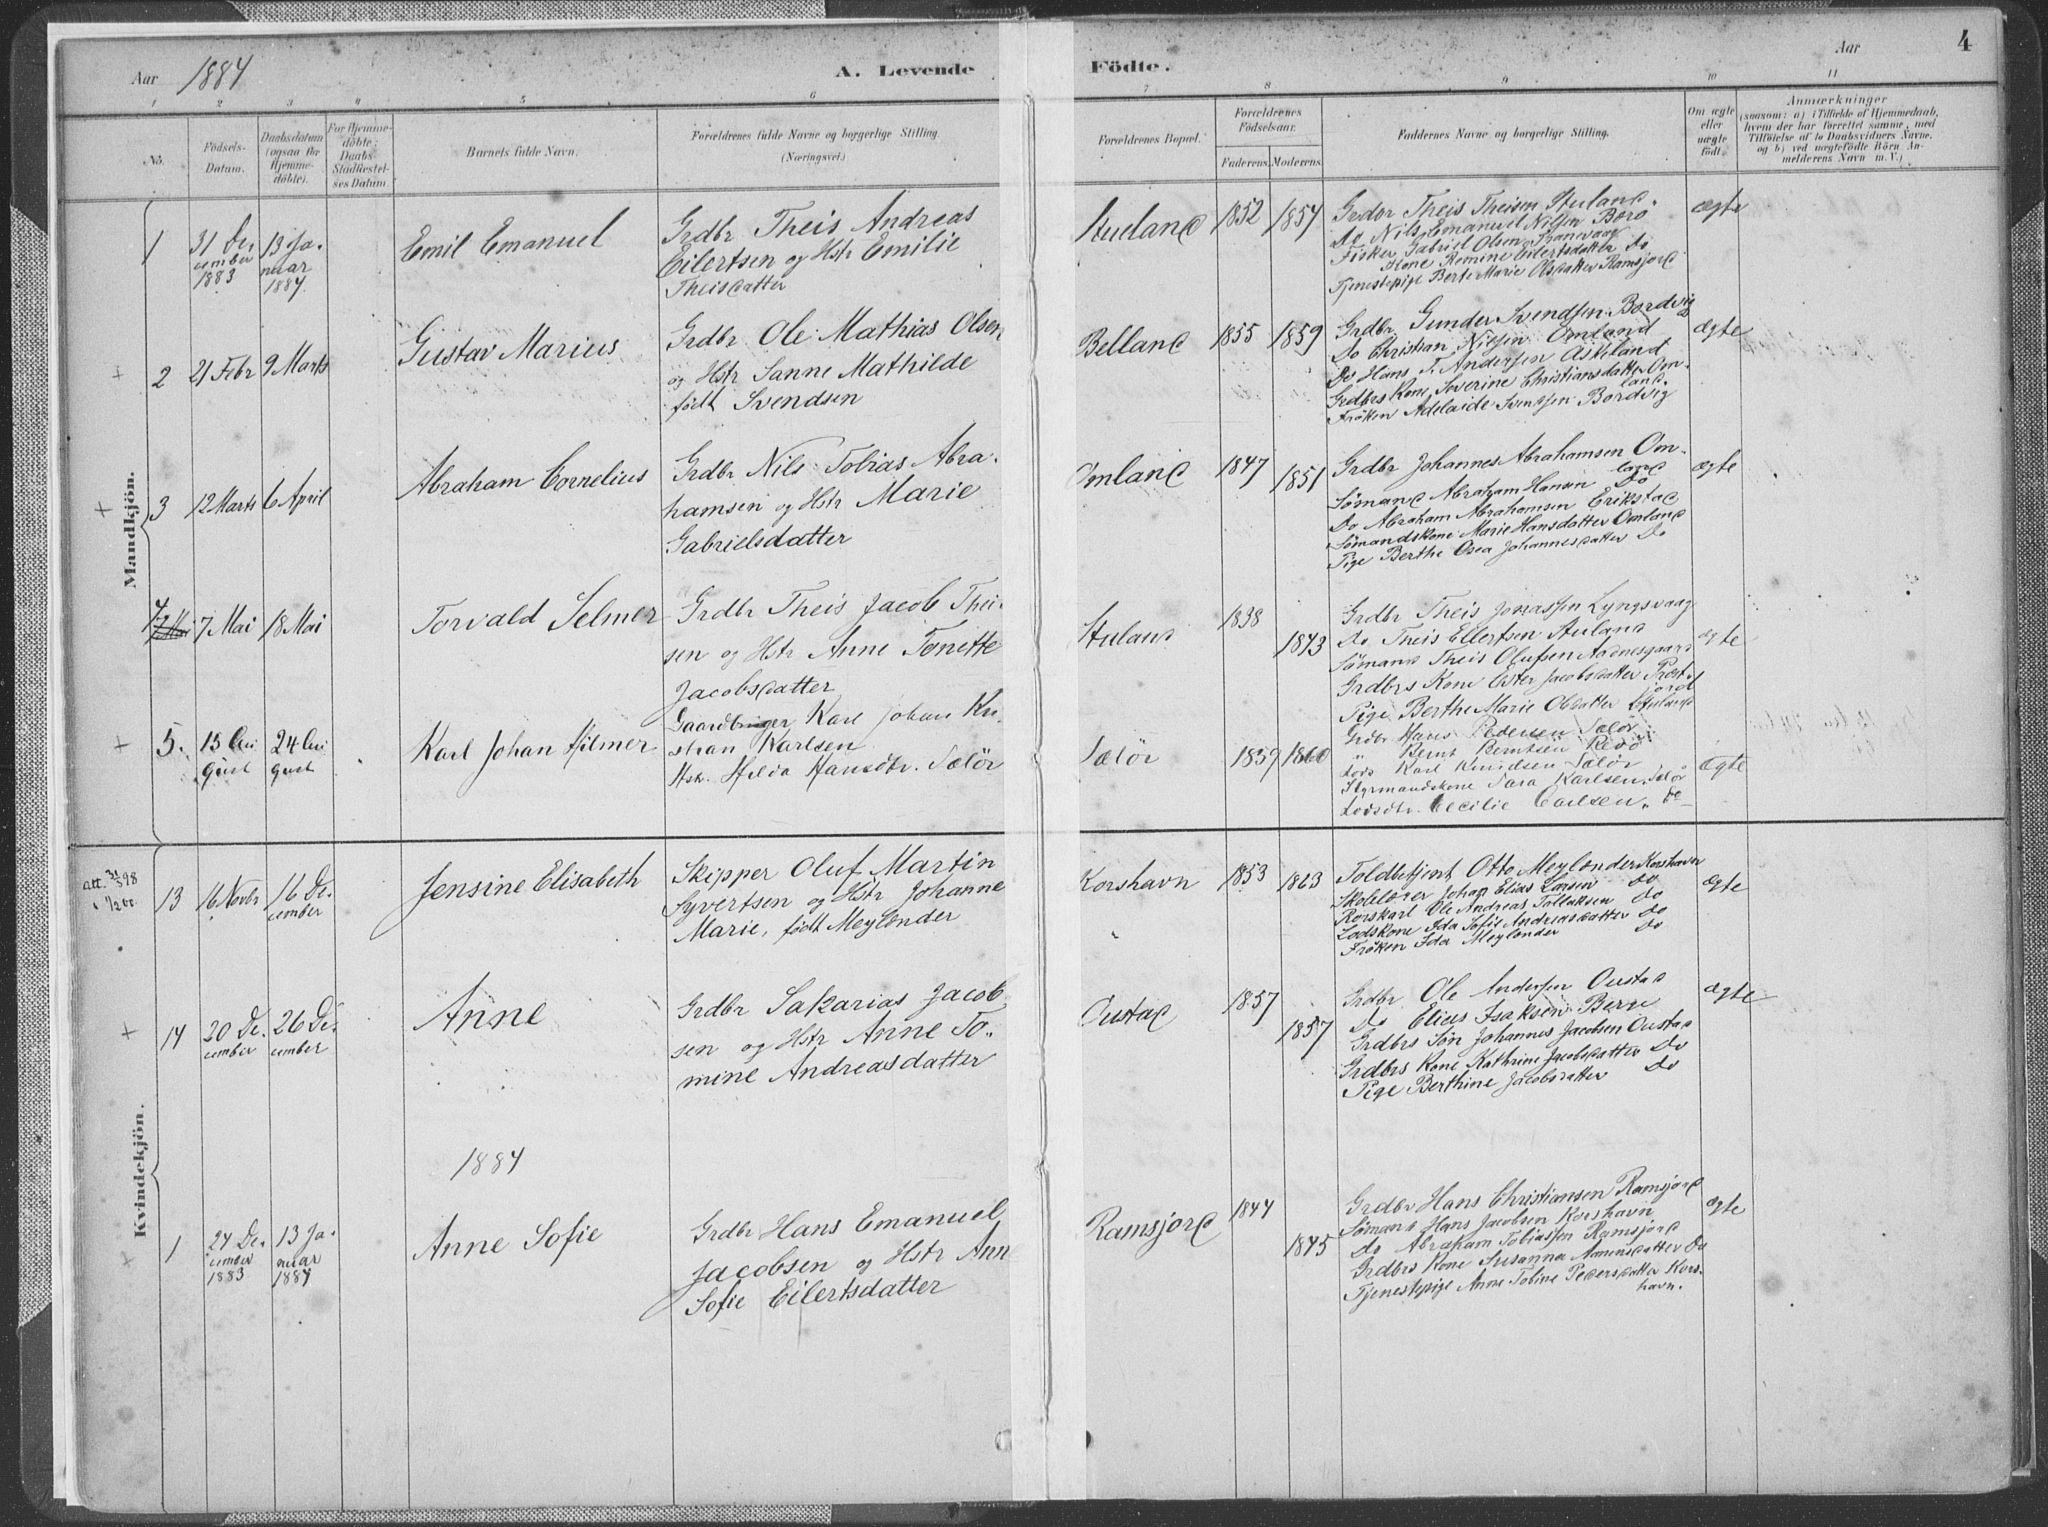 Aar 1884 A. Levende Födte. Aar 4
1 2 3 4 5 6 7 8 9 10 11
No. Födsels-Datum. Daabsdatum (ogsaa for Hjemmedöbte). For Hjemmedöbte: Daabs-Stadfæstelses Datum. Barnets fulde Navn. Forældrenes fulde Navne og borgerlige Stilling. (Næringsvei.) Forældrenes Bopæl. Forældrenes Födselsaar. Faderens. Moderens. Faddernes Navne og borgerlige Stilling. Om ægte eller uægte födt. Anmærkninger (saasom: a) i Tilfælde af Hjemmedaab, hvem der har forrettet samme, med Tilföielse af to Daabsvidners Navne, og b) ved uægtefödte Börn Anmelderens Navn m. V.)
Mandkjön.
1 31 December 1883 13 Januar 1884 Emil Emanuel
Grdbr Theis Andreas
Eilertsen og Hstr Emilie
Theisdatter
Stueland 1852 1854
Grdbr Theis Theisen Stueland.
Do Nils Emanuel Nilsen Borö
Fisker Gabriel Olsen
Kone Romine Eilertsdatter Do
Tjenestepige Berte Marie Olsdatter Ramsjord
ægte
2 21 Febr 9 Marts Gustav Marius
Grdbr Ole Mathias Olsen
og Hstr Sanne Mathilde
født Svendsen
Belland 1855 1859
Grdbr. Gunder Svendsen Bordvig
Do Christian Nilsen Omland
Do Hans T. Andersen Askiland
Grdbrs Kone Severine Christiansdatter Omland.
Frøken Adelaide Svendsen Bordvig
ægte
3 12 Marts 6 April Abraham Cornelius
Grdbr Nils Tobias Abra-
hamsen og Hstr Marie
Gabrielsdatter
Omland 1847 1851
Grdbr Johannes Abrahamsen Omland
Sømand Abraham Hansen Do
Do Abraham Abrahamsen Erikstad
Sømandskone Marie Hansdatter Omland
Pige Berthe Osea Johannesdatter Do
ægte
4 7 Mai 18 Mai Torvald Selmer
Grdbr Theis Jacob Thei-
sen og Hstr Anne Tonette
Jacobsdatter
Stuland 1838 1843
Grdbr Theis Jonassen Lyngsvaag
do Theis Eilertsen Stuland
Sømand Theis Olufsen Aadnesgaard
Grdbrs Kone Ester Jacobsdatter
Pige Berthe Marie Olsdatter Stuland
ægte
5. 15 August 24 August Karl Johan Hilmer
Gaardbruger Karl Johan Kri-
stian Karlsen
Hstr. Hilda Hansdtr. Sælör
Sælör 1859 1860
Grdbr Hans Pedersen Sælör
" Bernt Berntsen Revö
Lods Karl Knudsen Sælör
Styrmandskone Sara Karlsen, Sælör
Lodsdtr. Cecilie Carlsen. do
Ægte
Kvindekjön.
att. 31/5 98
13 16 Novbr 16 December Jensine Elisabeth
Skipper Oluf Martin
Syvertsen og Hstr Johanne
Marie, født Meylænder
Korshavn 1853 1863
Toldbetjent Otto Meylænder Korshavn
Skolelærer Johan Elias Larsen do
Rorskarl Ole Andreas Tallaksen do
Lodskone Ida Sofie Andreasdatter do
Frøken Ida Meylænder do
ægte
14 20 December 26 December Anne
Grdbr Sakarias Jacob
sen og Hstr Anne To-
mine Andreasdatter
Oustad 1857 1857
Grdbr Ole Andersen Oustad
Do Elias Isaksen Berge
Grdbrs Søn Johannes Jacobsen Oustad
Grdbrs Kone Kathrine Jacobsdatter Do
Pige Berthine Jacobsdatter Do
ægte
1884
1 24 December 1883 13 Januar 1884 Anne Sofie
Grdbr Hans Emanuel
Jacobsen og Hstr Ann
Sofie Eilertsdatter
Ramsjord 1844 1845
Grdbr Hans Christiansen Ramsjord
Sømand Hans Jacobsen Korshavn
Do Abraham Tobiassen Ramsjord
Grdbrs Kone Susanna Aanensdatter Do
Tjenestepige Anne Tobine Pedersdatter Korshavn.
ægte